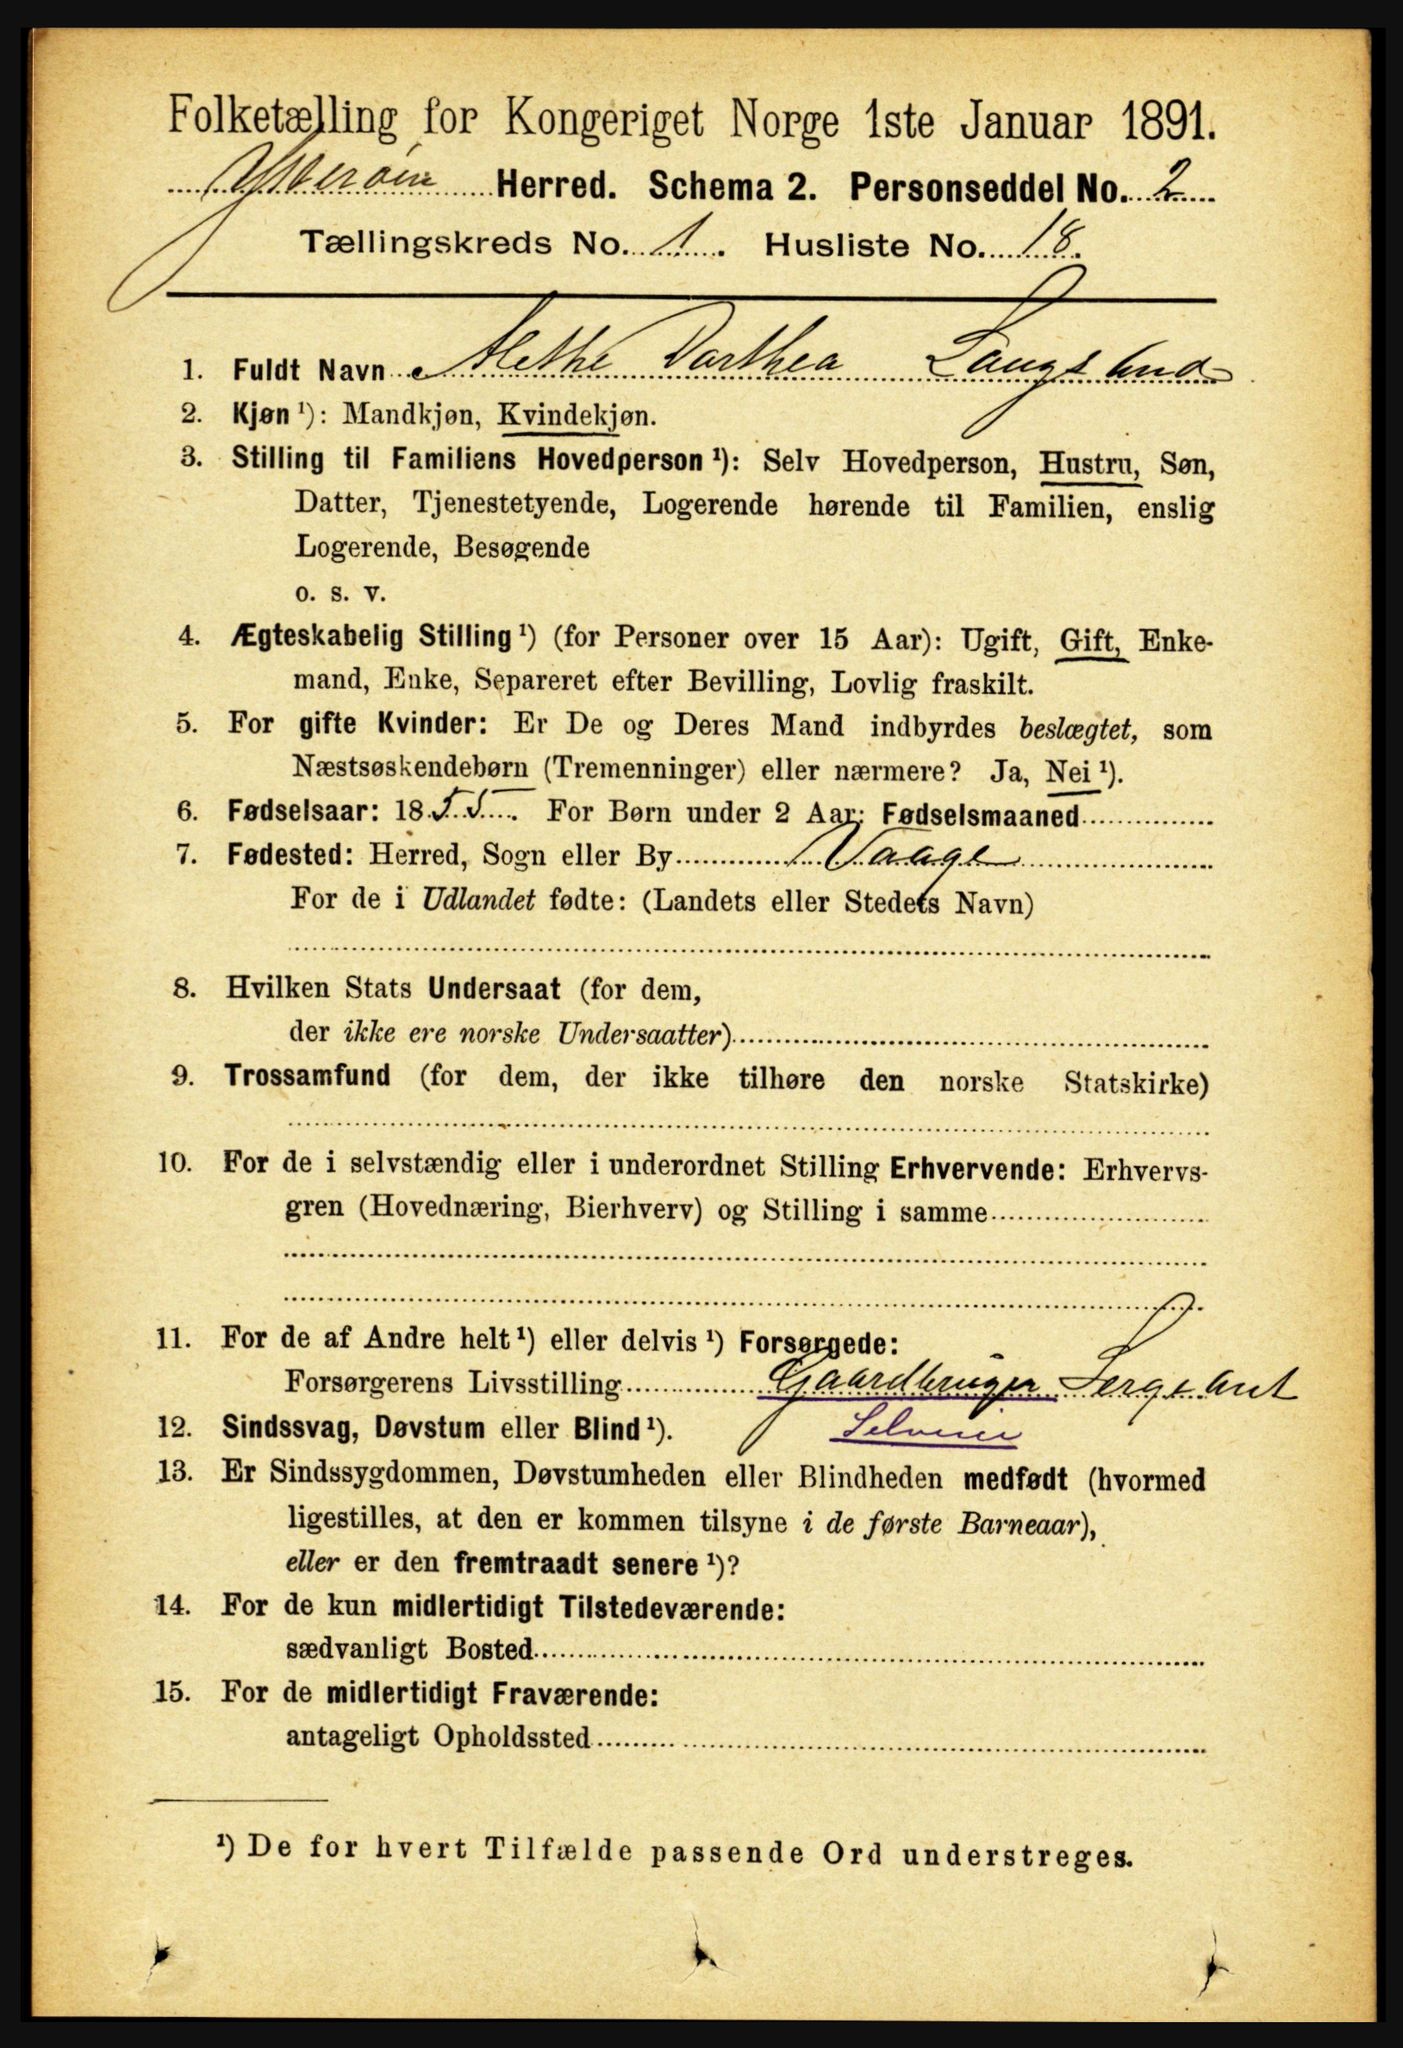 Folketælling for Kongeriget Norge 1ste Januar 1891.
Ytterøen Herred. Schema 2. Personseddel No. 2
Tællingskreds No. 1. Husliste No. 18.
1. Fuldt Navn Alethe Dorthea Laugsand
2. Kjøn ¹): Mandkjøn, Kvindekjøn.
3. Stilling til Familiens Hovedperson ¹): Selv Hovedperson, Hustru, Søn,
Datter, Tjenestetyende, Logerende hørende til Familien, enslig
Logerende, Besøgende
o. s. v.
4. Ægteskabelig Stilling ¹) (for Personer over 15 Aar): Ugift, Gift, Enke-
mand, Enke, Separeret efter Bevilling, Lovlig fraskilt.
5. For gifte Kvinder: Er De og Deres Mand indbyrdes beslægtet, som
Næstsøskendebørn (Tremenninger) eller nærmere? Ja, Nei ¹).
6. Fødselsaar: 1855. For Børn under 2 Aar: Fødselsmaaned
7. Fødested: Herred, Sogn eller By Vaage
For de i Udlandet fødte: (Landets eller Stedets Navn)
8. Hvilken Stats Undersaat (for dem,
der ikke ere norske Undersaatter)
9. Trossamfund (for dem, der ikke tilhøre den norske Statskirke)
10. For de i selvstændig eller i underordnet Stilling Erhvervende: Erhvervs-
gren (Hovednæring, Bierhverv) og Stilling i samme
11. For de af Andre helt ¹) eller delvis ¹) Forsørgede:
Forsørgerens Livsstilling Gaardbruger Sergeant
12. Sindssvag, Døvstum eller Blind ¹). Selveier
13. Er Sindssygdommen, Døvstumheden eller Blindheden medfødt (hvormed
ligestilles, at den er kommen tilsyne i de første Barneaar),
eller er den fremtraadt senere ¹)?
14. For de kun midlertidigt Tilstedeværende:
sædvanligt Bosted
15. For de midlertidigt Fraværende:
antageligt Opholdssted
¹) De for hvert Tilfælde passende Ord understreges.